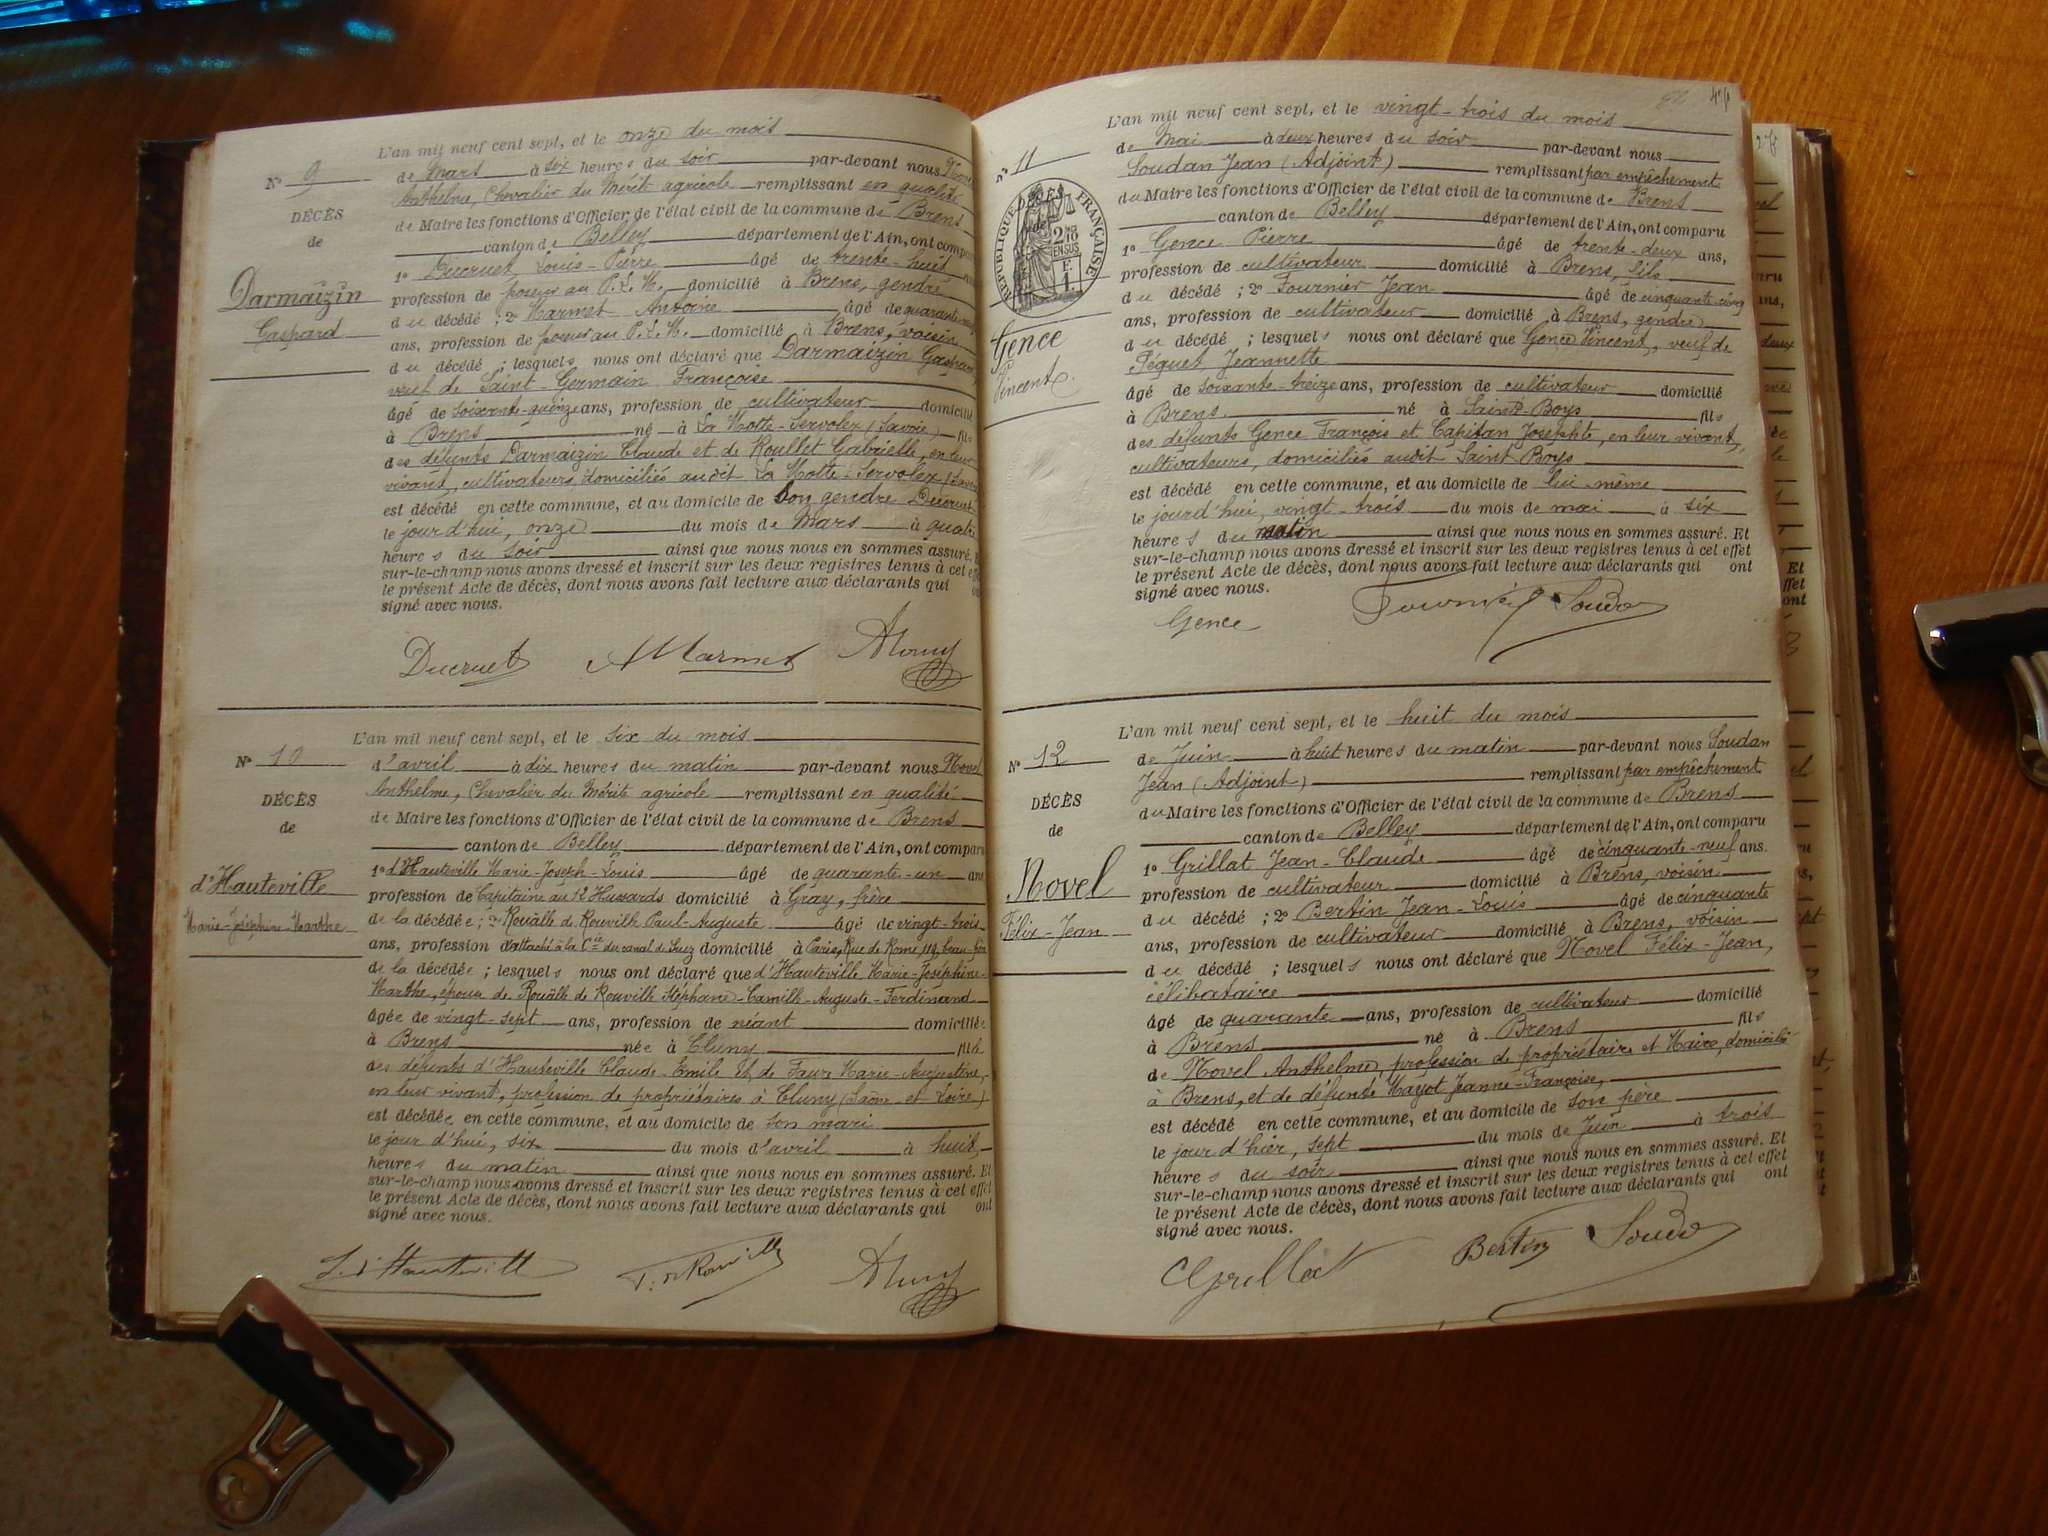 L'an mil neuf cent sept, et le onze du mois
N° 9
de Mars à six heures du soir par-devant nous Novel
Anthelme, Chevalier du Mérite agricole remplissant en qualité
DÉCÈS
de Maire les fonctions d'Officier de l'état civil de la commune de Brens
de
canton de Belley département de l'Ain, ont comparu
1° Ducruet Louis-Pierre âgé de trente-huit ans
Darmaizin
profession de poseur au P.L.M. domicilié à Brens, gendre
du décédé ; 2° Marmet Antoine âgé de quarante
Gaspard
ans, profession de poseur au P.L.M. domicilié à Brens, voisin
du décédé ; lesquels nous ont déclaré que Darmaizin Gaspard
veuf de Saint-Germain Françoise
âgé de soixante-quinze ans, profession de cultivateur domicilié
à Brens né à La Motte-Servolex (Savoie) fils
des défunts Darmaizin Claude et de Roullet Gabrielle, en leur
vivant, cultivateurs, domiciliés audit La Motte-Servolex (Savoie
est décédé en cette commune, et au domicile de son gendre Ducruet
le jour d'hui, onze du mois de Mars à quatre
heures du soir ainsi que nous nous en sommes assuré. Et
sur-le-champ nous avons dressé et inscrit sur les deux registres tenus à cet effet
le présent Acte de décès, dont nous avons fait lecture aux déclarants qui ont
signé avec nous.
Ducruet A Marmet
L'an mil neuf cent sept, et le six du mois
N° 10
d'avril à dix heures du matin par-devant nous Novel
Anthelme, Chevalier du Mérite agricole remplissant en qualité
DÉCÈS
de Maire les fonctions d'Officier de l'état civil de la commune de Brens
de
canton de Belley département de l'Ain, ont comparu
1° d'Hauteville Marie-Joseph-Louis âgé de quarante-un ans
d'Hauteville
profession de Capitaine au 12 Hussards domicilié à Gray, frère
Marie-Joséphine-Marthe
de la décédée ; 2° Rouälle de Rouville Paul-Auguste âgé de vingt-trois
ans, profession d'attaché à la Cie du canal de Suez domicilié à Paris, Rue de Rome, 119, beau-frère
de la décédée ; lesquels nous ont déclaré que d'Hauteville Marie-Joséphine-
Marthe, épouse de Rouälle de Rouville Stéphane-Camille-Auguste-Ferdinand
âgée de vingt-sept ans, profession de néant domiciliée
à Brens née à Cluny fille
des défunts d'Hauteville Claude-Emile et de Faure Marie-Augustine,
en leur vivant, profession de propriétaires à Cluny (Saône-et-Loire)
est décédée en cette commune, et au domicile de son mari
le jour d'hui, six du mois d'avril à huit
heures du matin ainsi que nous nous en sommes assuré. Et
sur-le-champ nous avons dressé et inscrit sur les deux registres tenus à cet effet
le présent Acte de décès, dont nous avons fait lecture aux déclarants qui ont
signé avec nous.
L. d'Hauteville
L'an mil neuf cent sept, et le vingt-trois du mois
N° 11
de Mai à deux heures du soir par-devant nous
Soudan Jean (Adjoint) remplissant par empêchement
DÉCÈS
de
RÉPUBLIQUE FRANÇAISE
du Maire les fonctions d'Officier de l'état civil de la commune de Brens
canton de Belley département de l'Ain, ont comparu
1° Gence Pierre âgé de trente-deux ans,
profession de cultivateur domicilié à Brens, fils
du décédé ; 2° Fournier Jean âgé de cinquante-cinq
Gence
Vincent
ans, profession de cultivateur domicilié à Brens, gendre
du décédé ; lesquels nous ont déclaré que Gence Vincent, veuf de
Péguet Jeannette
âgé de soixante-treize ans, profession de cultivateur domicilié
à Brens né à Saint-Boys fils
des défunts Gence François et Capitan Josephte, en leur vivant,
cultivateurs, domiciliés audit Saint Boys
est décédé en cette commune, et au domicile de lui-même
le jour d'hui, vingt-trois du mois de mai à six
heures du matin ainsi que nous nous en sommes assuré. Et
sur-le-champ nous avons dressé et inscrit sur les deux registres tenus à cet effet
le présent Acte de décès, dont nous avons fait lecture aux déclarants qui ont
signé avec nous.
Gence Fournier Soudan
L'an mil neuf cent sept, et le huit du mois
N° 12
de Juin à huit heures du matin par-devant nous Soudan
Jean (Adjoint) remplissant par empêchement
DÉCÈS
du Maire les fonctions d'Officier de l'état civil de la commune de Brens
de
canton de Belley département de l'Ain, ont comparu
1° Grillat Jean-Claude âgé de cinquante-neuf ans.
Novel
profession de cultivateur domicilié à Brens, voisin
Félix-Jean
du décédé ; 2° Bertin Jean-Louis âgé de cinquante
ans, profession de cultivateur domicilié à Brens, voisin
du décédé ; lesquels nous ont déclaré que Novel Félix-Jean,
célibataire
âgé de quarante ans, profession de cultivateur domicilié
à Brens né à Brens fils
de Novel Anthelme, profession de propriétaire et Maire, domicilié
à Brens, et de défunte Mayot Jeanne-Françoise,
est décédé en cette commune, et au domicile de son père
le jour d'hier, sept du mois de Juin à trois
heures du soir ainsi que nous nous en sommes assuré. Et
sur-le-champ nous avons dressé et inscrit sur les deux registres tenus à cet effet
le présent Acte de décès, dont nous avons fait lecture aux déclarants qui ont
signé avec nous.
Grillat Bertin Soudan